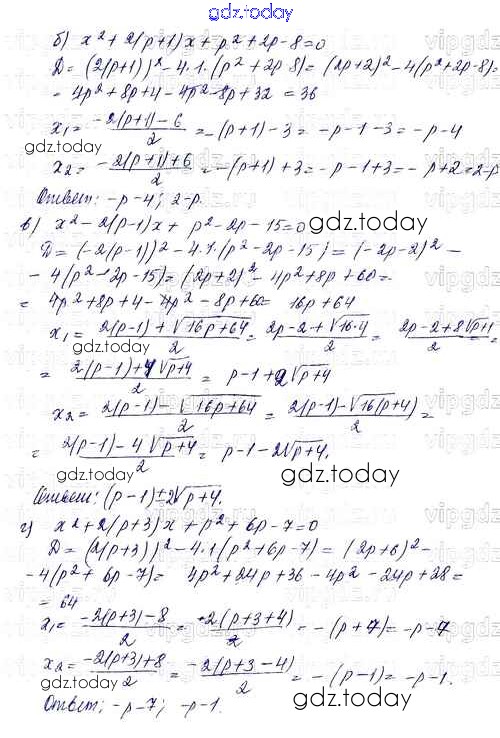 gdz.today
б) x² + 2(p+1)x + p² + 2p - 8 = 0
D = (2(p+1))² - 4·1·(p² + 2p - 8) = (2p+2)² - 4(p² + 2p - 8) =
= 4p² + 8p + 4 - 4p² - 8p + 32 = 36
x₁ = (-2(p+1) - 6)/2 = -(p+1) - 3 = -p - 1 - 3 = -p - 4
gdz.today
x₂ = (-2(p+1) + 6)/2 = -(p+1) + 3 = -p - 1 + 3 = -p + 2 = 2-p
Ответ: -p-4; 2-p.
в) x² - 2(p-1)x + p² - 2p - 15 = 0
gdz.today
D = (-2(p-1))² - 4·1·(p² - 2p - 15) = (-2p-2)² -
- 4(p² - 2p - 15) = (2p+2)² - 4p² + 8p + 60 =
= 4p² + 8p + 4 - 4p² - 8p + 60 = 16p + 64
x₁ = (2(p-1) + √(16p+64))/2 = (2p - 2 + √16·4)/2 = (2p - 2 + 8√(p+1))/2 =
gdz.today
= (2(p-1) + 4√(p+4))/2 = p - 1 + 2√(p+4)
x₂ = (2(p-1) - √(16p+64))/2 = (2(p-1) - √(16(p+4)))/2 =
= (2(p-1) - 4√(p+4))/2 = p - 1 - 2√(p+4).
gdz.today
gdz.today
Ответ: (p-1) ± 2√(p+4).
г) x² + 2(p+3)x + p² + 6p - 7 = 0
D = (2(p+3))² - 4·1(p² + 6p - 7) = (2p+6)² -
- 4(p² + 6p - 7) = 4p² + 24p + 36 - 4p² - 24p + 28 =
= 64
x₁ = (-2(p+3) - 8)/2 = (-2(p+3+4))/2 = -(p+7) = -p-7
x₂ = (-2(p+3) + 8)/2 = (-2(p+3-4))/2 = -(p-1) = -p-1.
gdz.today
gdz.today
Ответ: -p-7; -p-1.